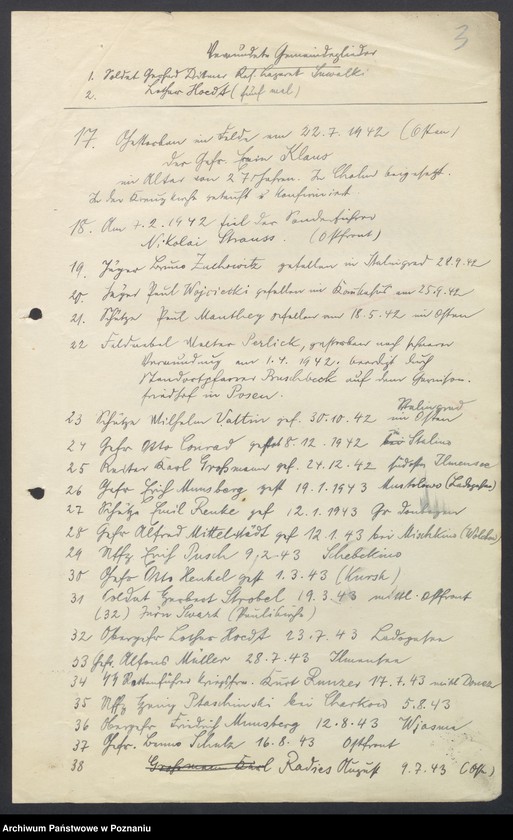 3
Verwundete Gemeindeglieder
1. Soldat Gerhard Dittmer Res. Lazaret Suwalki
2. Lothar Hoedt (fünf mal)
17. Gestorben im Felde am 22.7.1942 (Osten)
der Gefr. Klaus
im Alter von 27 Jahren. In Cholm beigesetzt.
In der Kreuzkirche getauft u konfirmiert.
18. Am 7.2.1942 fiel der Sonderführer
Nikolai Strauss. (Ostfront)
19. Jäger Bruno Zachowitz gefallen in Stalingrad 28.9.42
20. Jäger Paul Wojciecki gefallen im Kaukasus am 25.9.42
21. Schütze Paul Manthey gefallen am 18.5.42 im Osten
22 Feldwebel Walter Perlick, gestorben nach schwerer
Verwundung am 1.4.1942. beerdigt durch
Standortpfarrer auf dem Garnison.
friedhof in Posen.
23 Schütze Wilhelm Vattin gef. 30.10.42 im Osten
Stalingrad
24 Gefr. Otto Conrad gef 8.12.1942 bei Stalino
25 Reiter Karl Großmann gef. 24.12.42 Ilmensee
26 Gefr Erich Munsberg gef 19.1.1943 (Ladogasee)
27 Schütze Emil Renke gef 12.1.1943
28 Gefr Alfred Mittelstädt gef 12.1.43 bei Mischkino
29 Uffz Erich Pusch 9.2.43 Schebekino
30 Gefr Otto Henkel gef 1.3.43 (Kursk)
31 Soldat Herbert Strobel 19.3.43 mittl. Ostfront
(32) Swart (Paulikirche)
32 Obergefr Lothar Hoedt 23.7.43 Ladogasee
33 Gefr. Alfons Müller 28.7.43 Ilmensee
34 Kurt Runzer 17.7.43 mittl Donez
35 Uffz Ptaschinski bei Charkow 5.8.43
36 Obergefr. Friedrich Munsberg 12.8.43 Wjasma
37 Gefr. Benno Schulz 16.8.43 Ostfront
38 Großmann Karl Radies August 9.7.43 (Ost)
Archiwum Państwowe w Poznaniu